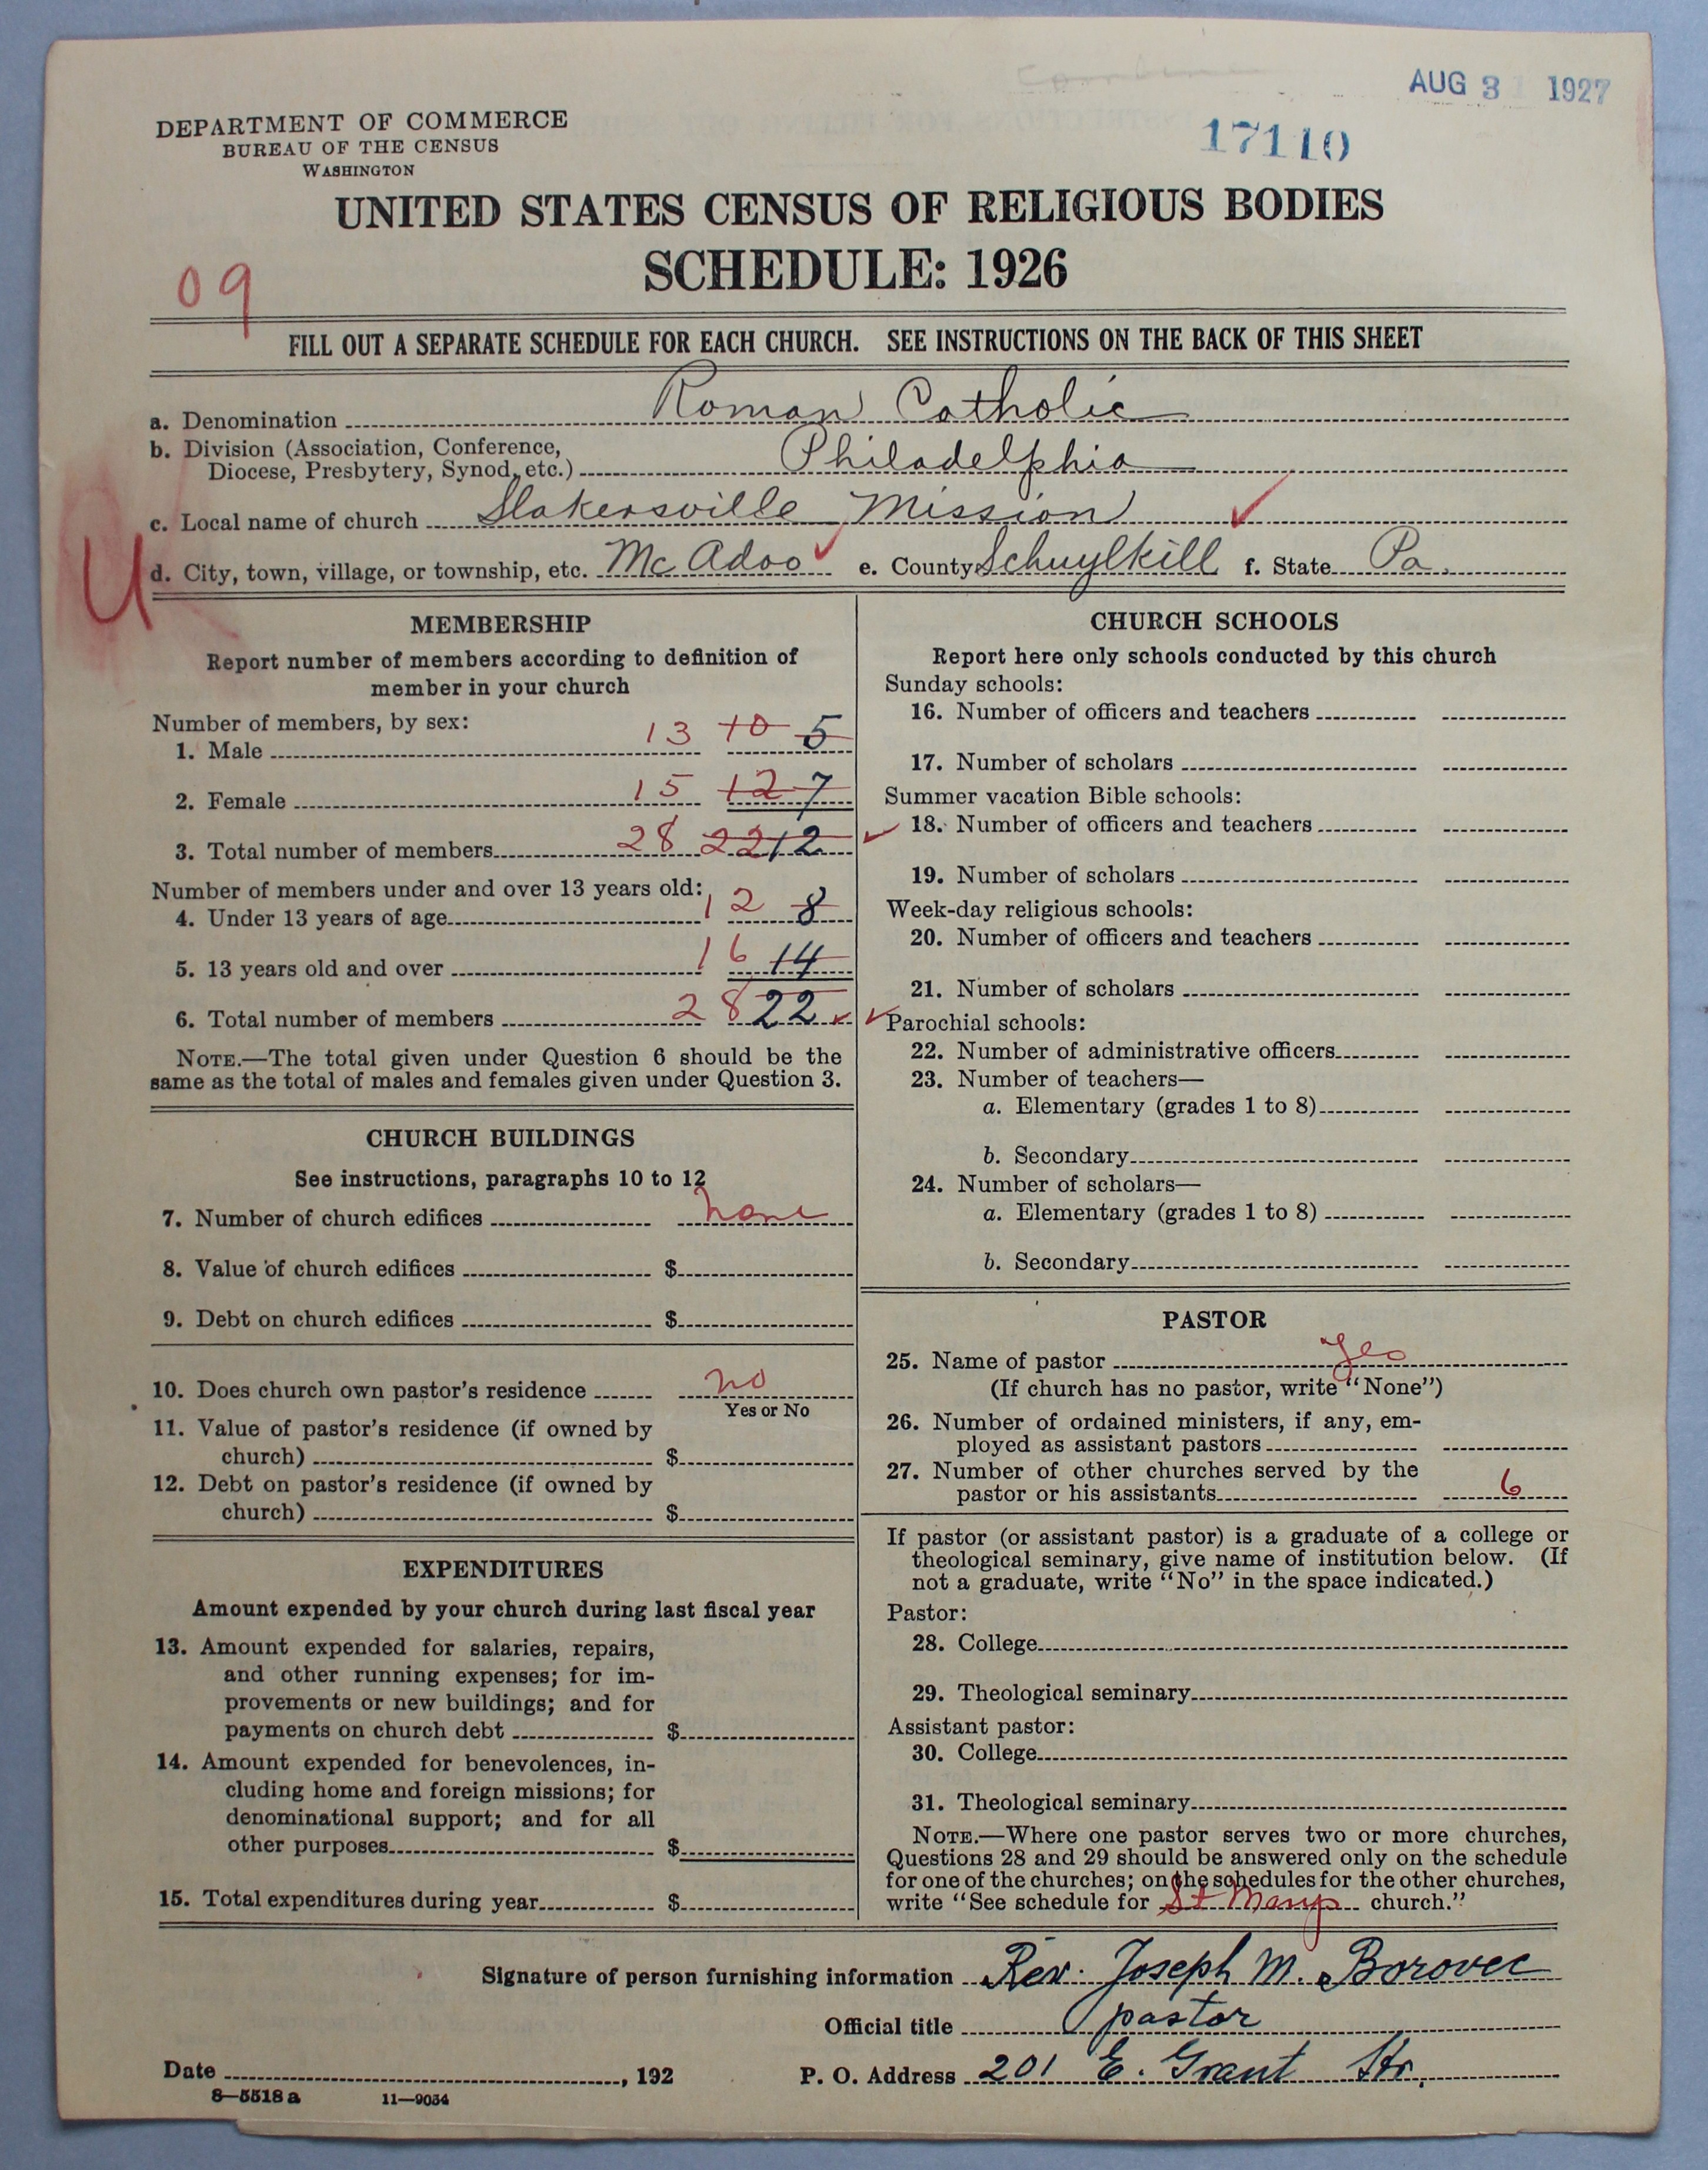 AUG 31 1927
17110
DEPARTMENT OF COMMERCE
BUREAU OF THE CENSUS
WASHINGTON
UNITED STATES CENSUS OF RELIGIOUS BODIES
SCHEDULE: 1926
09
FILL OUT A SEPARATE SCHEDULE FOR EACH CHURCH. SEE INSTRUCTIONS ON THE BACK OF THIS SHEET
a. Denomination Roman Catholic
b. Division (Association, Conference,
Diocese, Presbytery, Synod, etc.) Philadelphia
c. Local name of church Slakersville Mission
U
d. City, town, village, or township, etc. Mc Adoo e. County Schuylkill f. State Pa.
MEMBERSHIP
Report number of members according to definition of
member in your church
Number of members, by sex:
1. Male 13 10 5
2. Female 15 12 7
3. Total number of members 28 22 12
Number of members under and over 13 years old:
4. Under 13 years of age 12 8
5. 13 years old and over 16 14
6. Total number of members 28 22
NOTE.—The total given under Question 6 should be the
same as the total of males and females given under Question 3.
CHURCH BUILDINGS
See instructions, paragraphs 10 to 12
7. Number of church edifices none
8. Value of church edifices $
9. Debt on church edifices $
10. Does church own pastor's residence no
Yes or No
11. Value of pastor's residence (if owned by
church) $
12. Debt on pastor's residence (if owned by
church) $
EXPENDITURES
Amount expended by your church during last fiscal year
13. Amount expended for salaries, repairs,
and other running expenses; for im-
provements or new buildings; and for
payments on church debt $
14. Amount expended for benevolences, in-
cluding home and foreign missions; for
denominational support; and for all
other purposes $
15. Total expenditures during year $
CHURCH SCHOOLS
Report here only schools conducted by this church
Sunday schools:
16. Number of officers and teachers
17. Number of scholars
Summer vacation Bible schools:
18. Number of officers and teachers
19. Number of scholars
Week-day religious schools:
20. Number of officers and teachers
21. Number of scholars
Parochial schools:
22. Number of administrative officers
23. Number of teachers—
a. Elementary (grades 1 to 8)
b. Secondary
24. Number of scholars—
a. Elementary (grades 1 to 8)
b. Secondary
PASTOR
25. Name of pastor yes
(If church has no pastor, write "None")
26. Number of ordained ministers, if any, em-
ployed as assistant pastors
27. Number of other churches served by the
pastor or his assistants 6
If pastor (or assistant pastor) is a graduate of a college or
theological seminary, give name of institution below. (If
not a graduate, write "No" in the space indicated.)
Pastor:
28. College
29. Theological seminary
Assistant pastor:
30. College
31. Theological seminary
NOTE.—Where one pastor serves two or more churches,
Questions 28 and 29 should be answered only on the schedule
for one of the churches; on the schedules for the other churches,
write "See schedule for St Marys church."
Signature of person furnishing information Rev. Joseph M. Borovec
Official title pastor
Date , 192 P. O. Address 201 E. Grant Str.
8—5518 a 11—9054